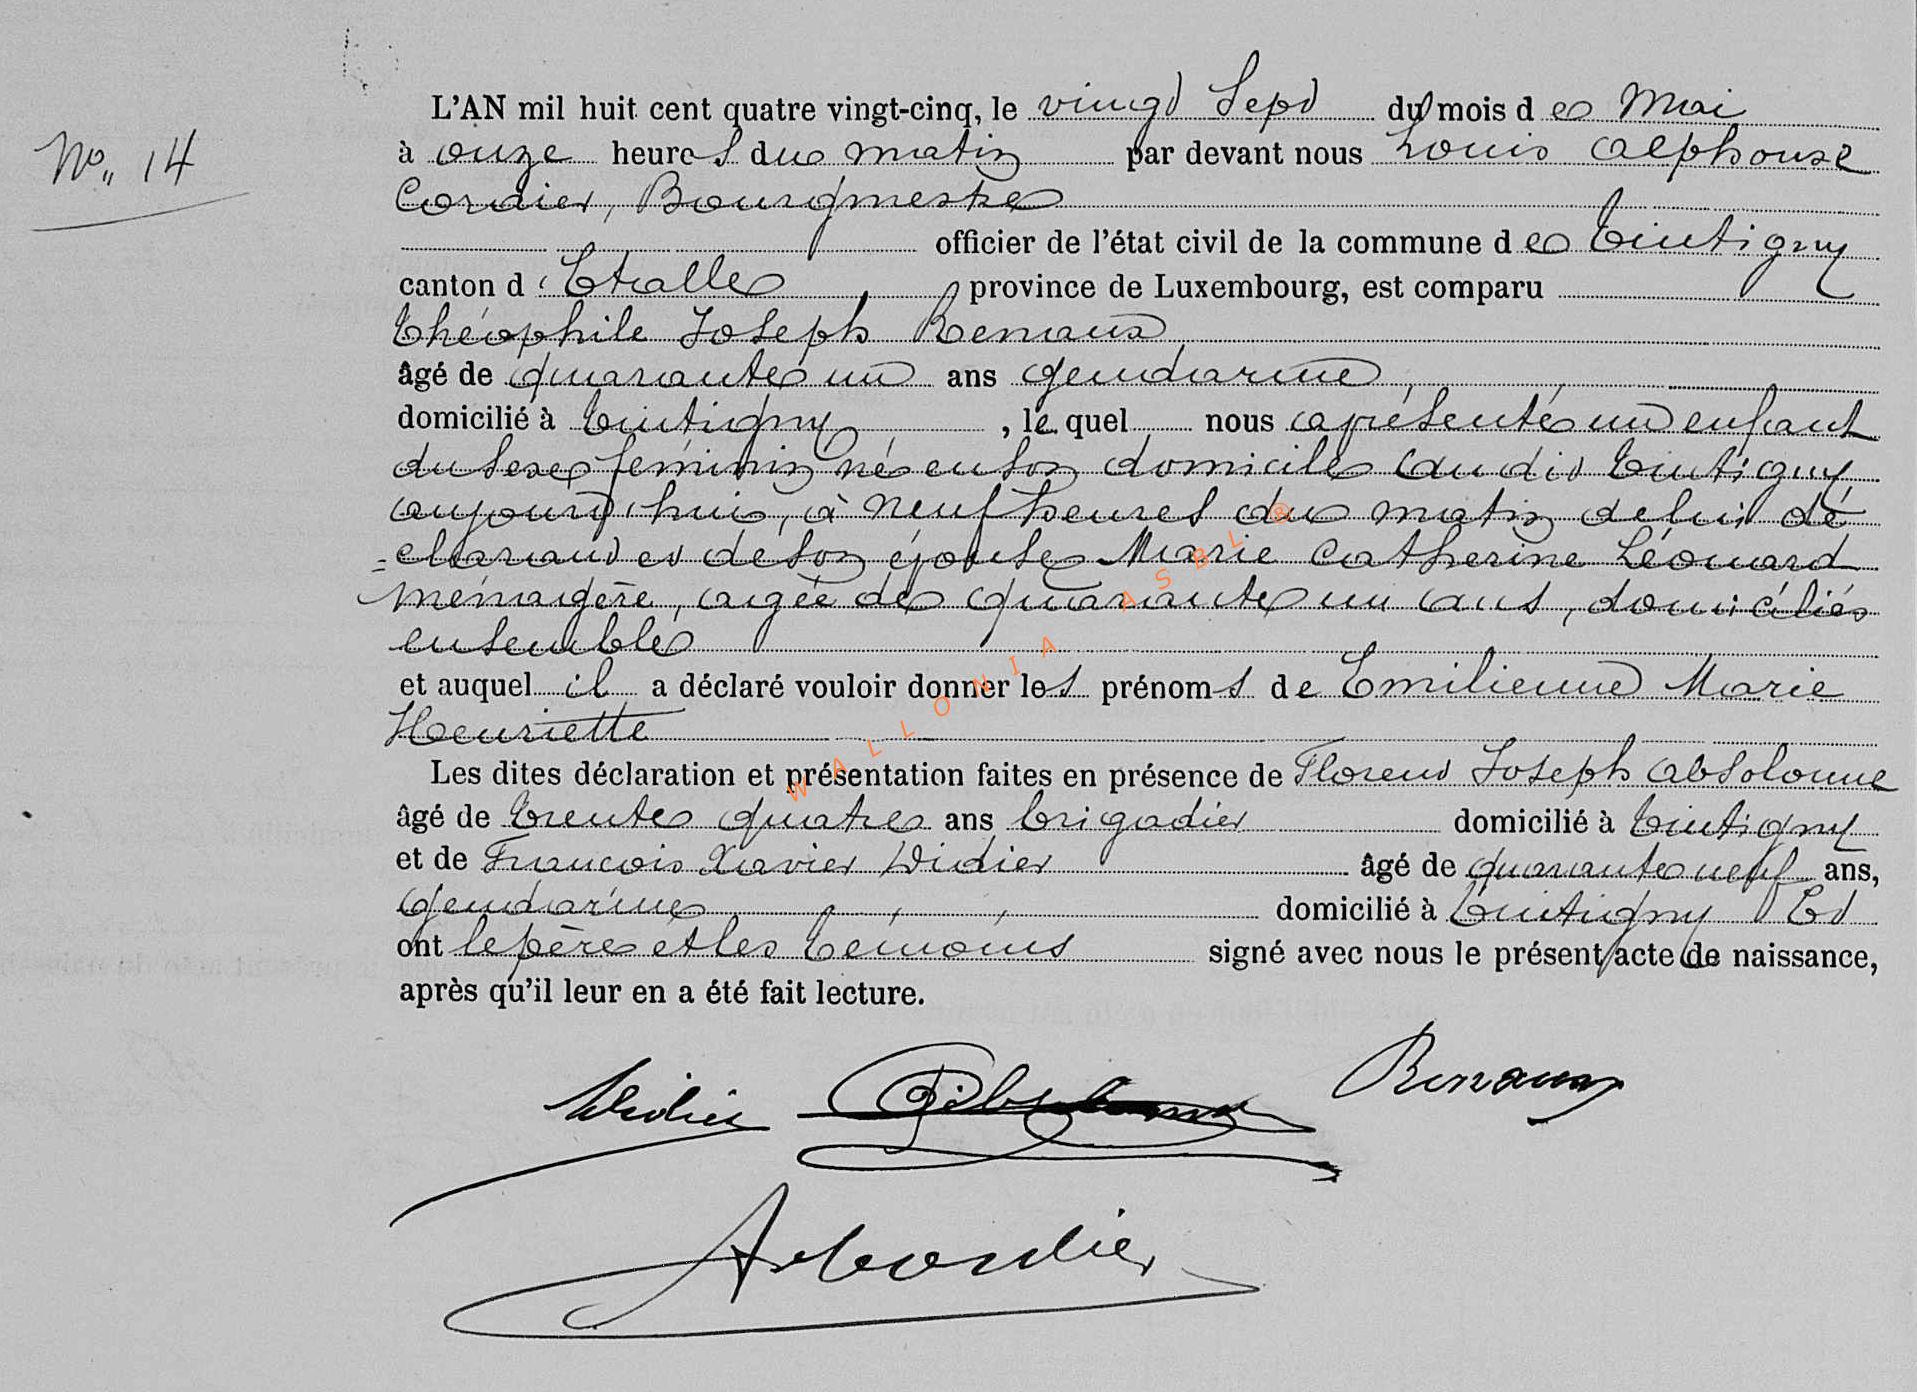 N° 14
L'AN mil huit cent quatre vingt-cinq, le vingt Sept du mois de Mai
à onze heures du matin par devant nous Louis Alphonse
Cordier, Bourgmestre
officier de l'état civil de la commune de Tintigny
canton d'Etalle, province de Luxembourg, est comparu
Théophile Joseph Renaux
âgé de quarante un ans gendarme,
domicilié à Tintigny, lequel nous a présenté un enfant
du sexe féminin né en son domicile au dit Tintigny
aujourd'hui, à neuf heures du matin de lui dé
=clarant et de son épouse Marie Catherine Léonard
ménagère, agée de quarante un ans, domiciliés
ensemble
et auquel il a déclaré vouloir donner les prénoms de Emilienne Marie
Henriette
Les dites déclaration et présentation faites en présence de Florent Joseph Absolonne
âgé de trente quatre ans brigadier domicilié à Tintigny
et de Francois Xavier Didier âgé de quarante neuf ans,
gendarme, domicilié à Tintigny Et
ont le père et les témoins signé avec nous le présent acte de naissance,
après qu'il leur en a été fait lecture.
Didier Absolonne Renaux
Cordier
WALLONIA ASBL ®